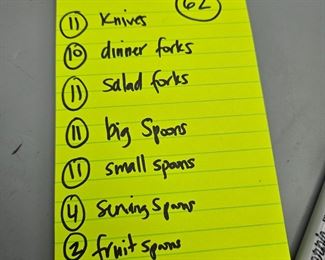 62
11 Knives
10 dinner forks
11 salad forks
11 big Spoons
11 small spoons
4 serving spoons
2 fruit spoons